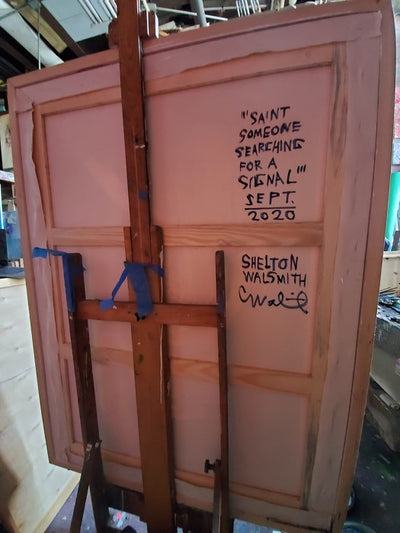 "'SAINT
SOMEONE
SEARCHING
FOR A
SIGNAL'"
SEPT.
2020
SHELTON
WALSMITH